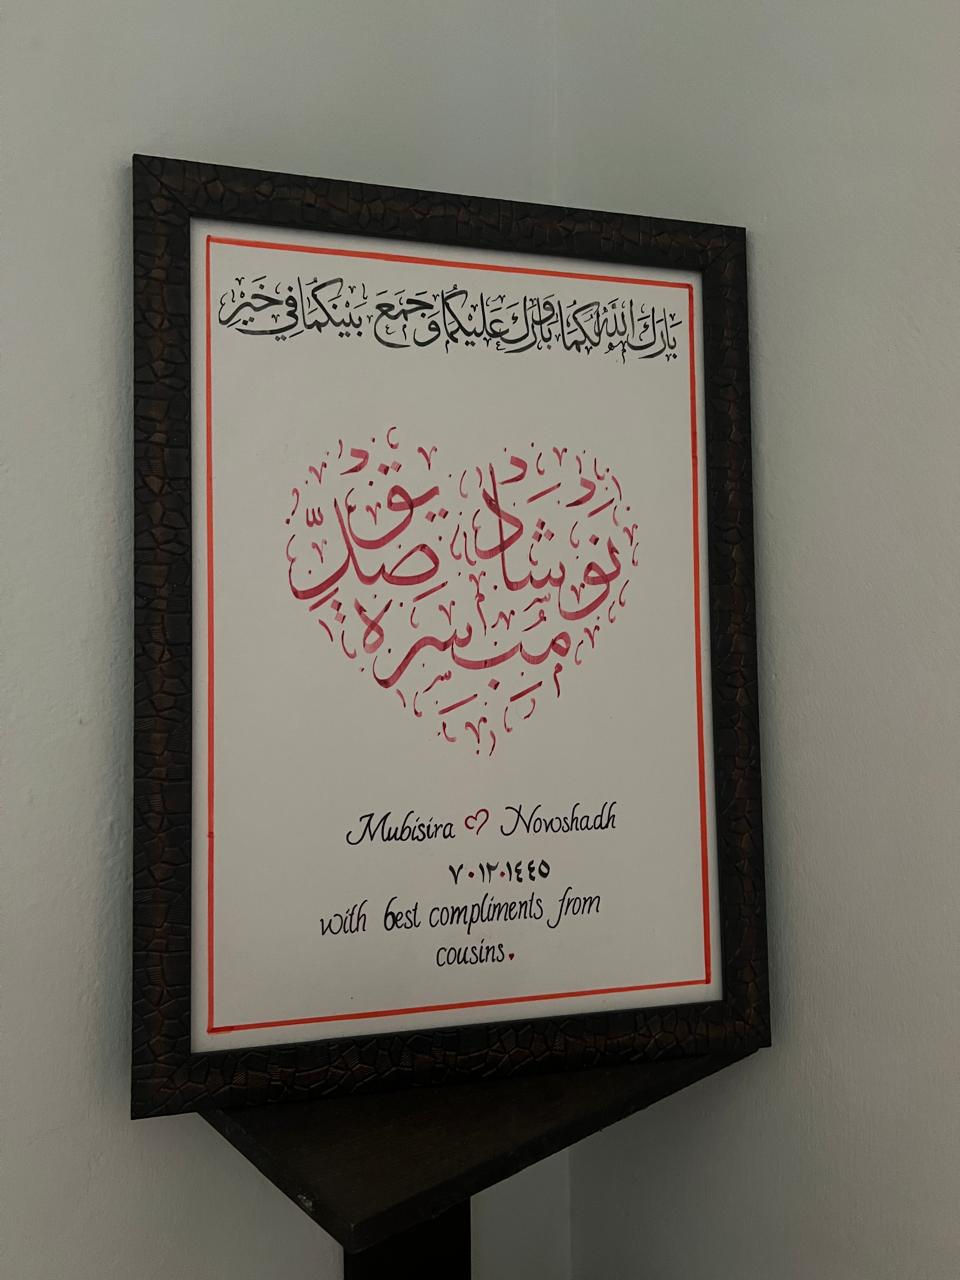 بَارَكَ اللَّهُ لَكُمَا وَبَارَكَ عَلَيْكُمَا وَجَمَعَ بَيْنَكُمَا فِي خَيْرٍ
نوشاد صدّيق
مُبسرة
Mubisira ♡ Nowshadh
٧.١٢.١٤٤٥
with best compliments from
cousins.